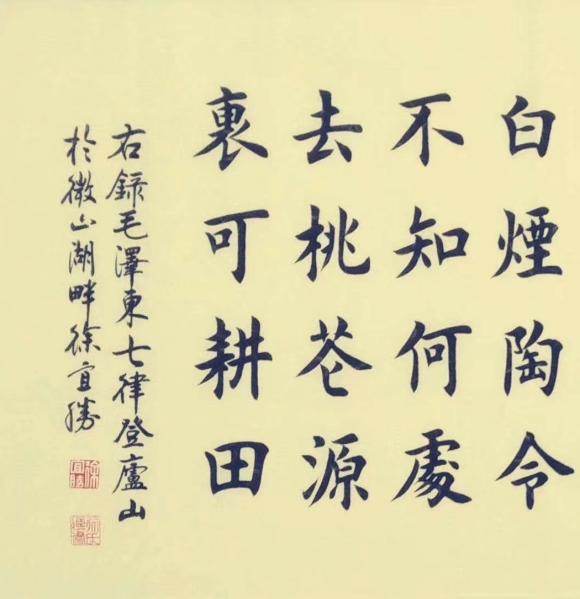 白煙陶令
不知何處
去桃花源
裏可耕田
右錄毛澤東七律登廬山
於微山湖畔徐宜勝